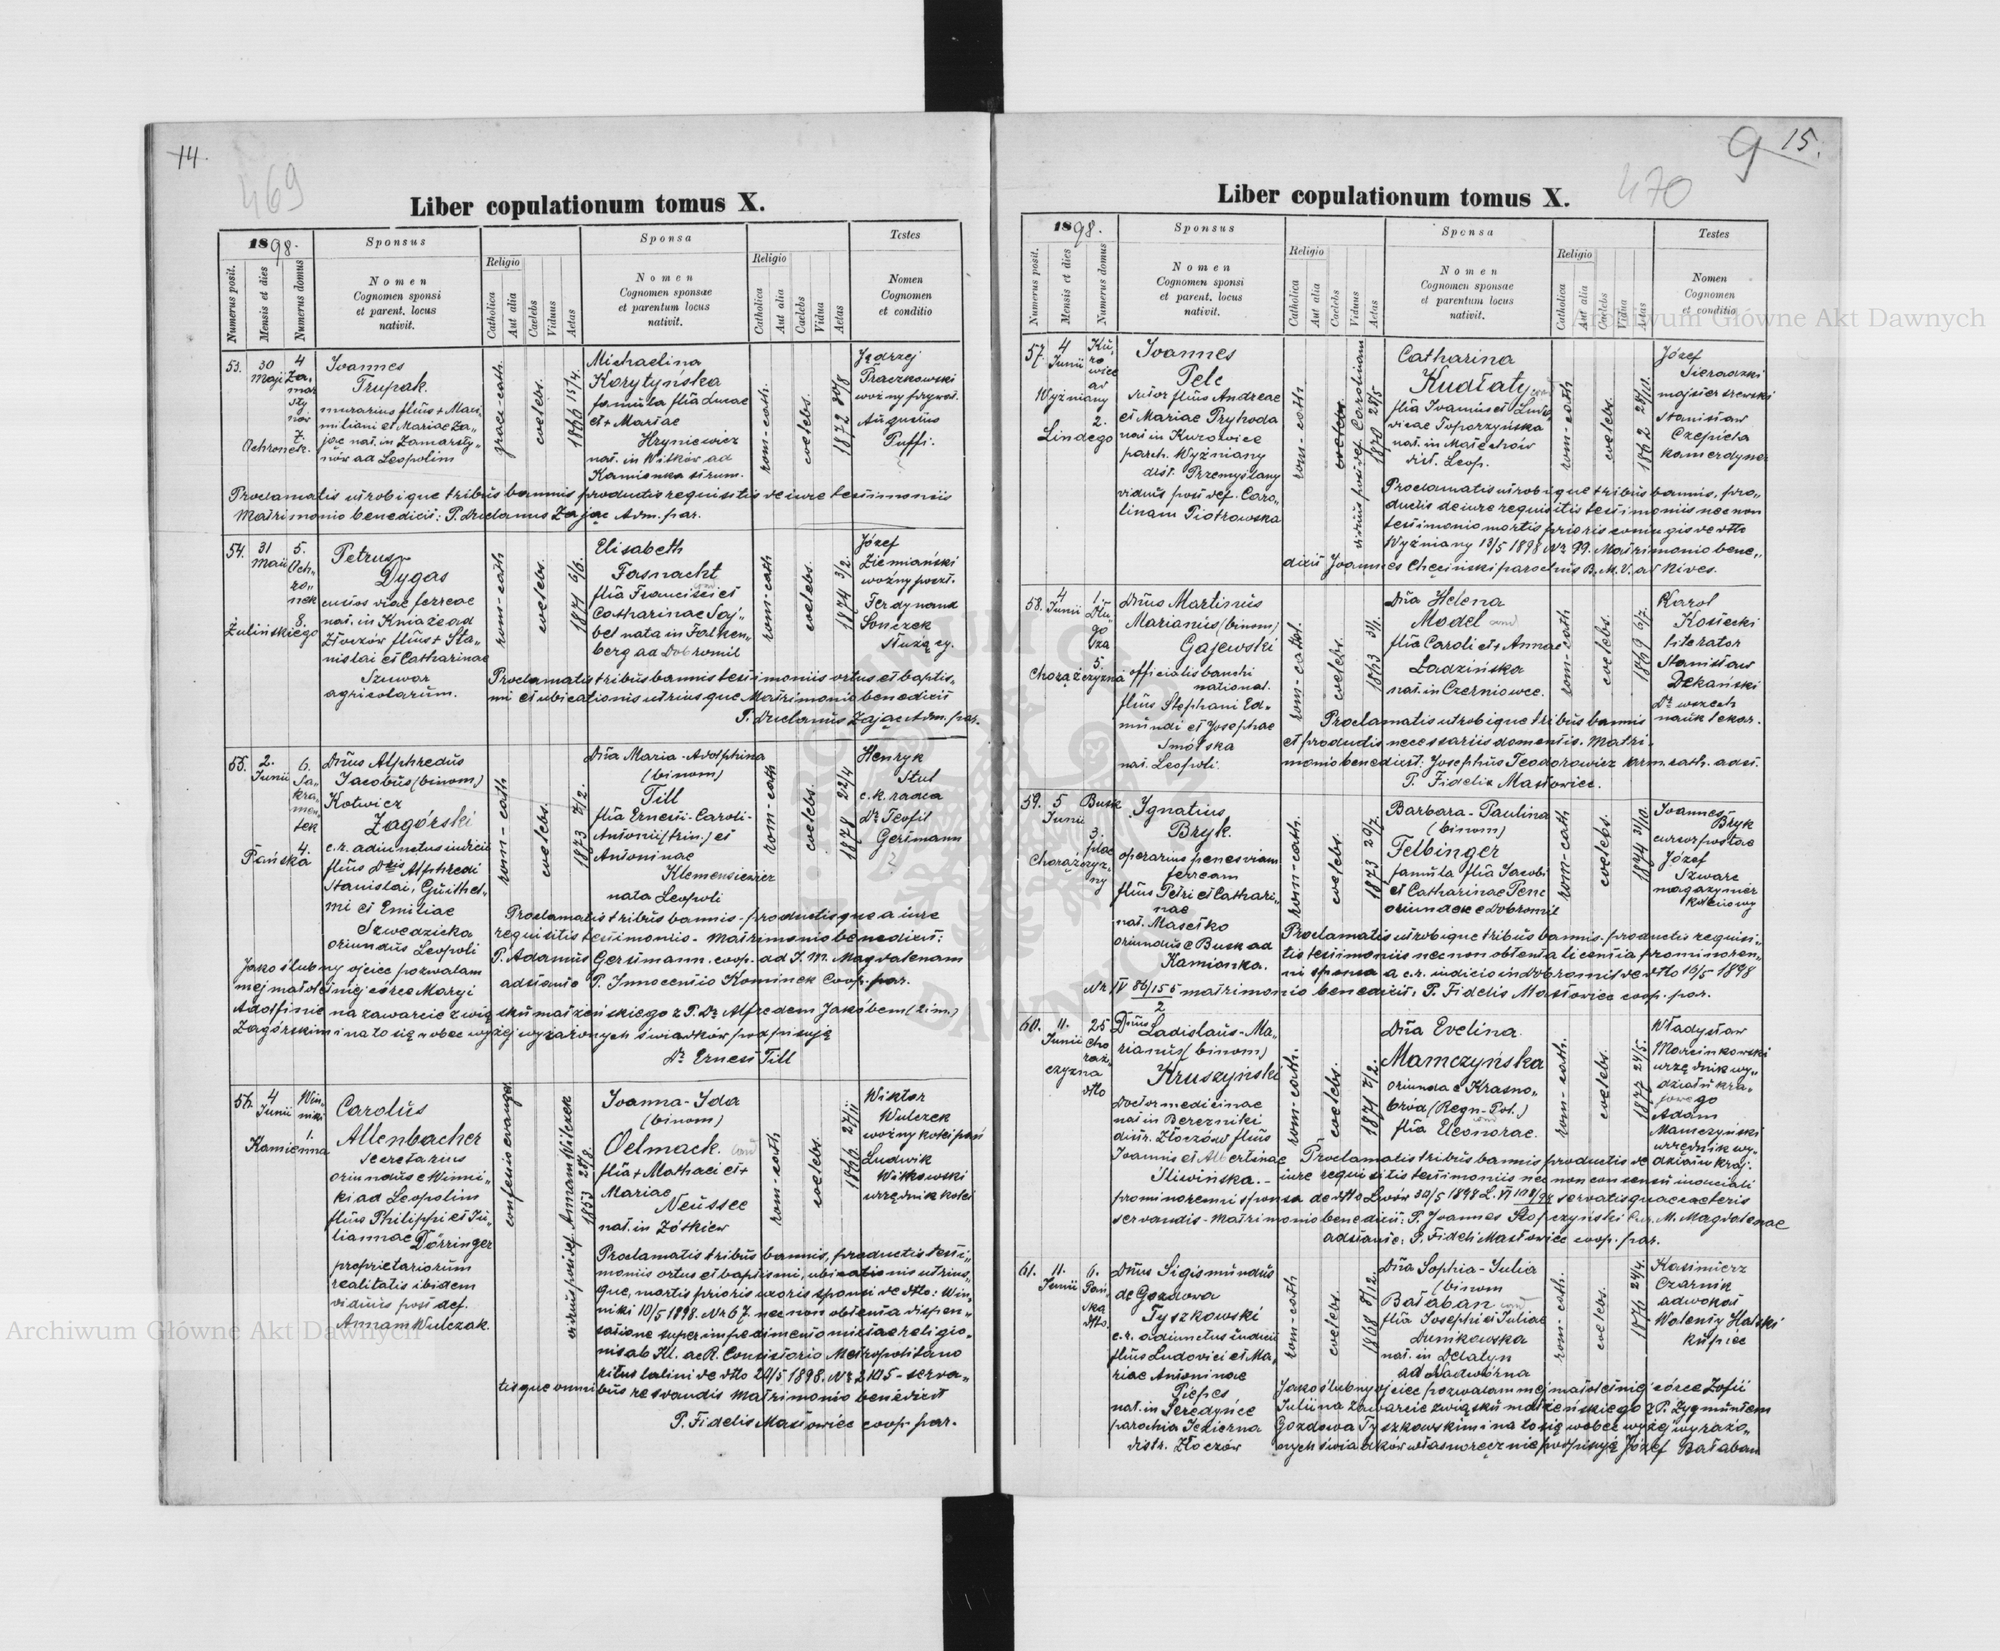 14.
469
Liber copulationum tomus X.
1898.
Sponsus
Sponsa
Testes
Numerus posit.
Mensis et dies
Numerus domus
Nomen
Cognomen sponsi
et parent. locus
nativit.
Religio
Catholica
Aut alia
Caelebs
Viduus
Aetas
Nomen
Cognomen sponsae
et parentum locus
nativit.
Religio
Catholica
Aut alia
Caelebs
Vidua
Aetas
Nomen
Cognomen
et conditio
53.
30
Maji
4
7.
Ochronek.
Joannes
Trupak.
murarius filius + Maxi
miliani et Mariae Za-
jąc nat. in Zamarsty-
nów ad Leopolim
graec-cath.
coelebs.
1866 15/4.
Michaelina
Korytyńska
famula filia Lucae
et + Mariae
Hryniewicz
nat. in Witków ad
Kamionka strum.
rom-cath.
coelebs.
1872
Jędrzej
Praczkowski
woźny prywat.
Augustus
Puffi.
Proclamatis utrobique tribus bannis productis requisitis de iure testimoniis
Matrimonio benedicit: P. Zając Adm. par.
54.
31
Maii
5.
Och-
ro-
nek
8.
Żulińskiego
Petrus
Dygas
custos viae ferreae
nat. in Kniaże ad
Złoczów filius + Sta-
nislai et Catharinae
Szuwar
agricolarum.
rom-cath
coelebs.
1871 6/6.
Elisabeth
Fasnacht
filia Francisci et
Catharinae Saj-
bel nata in Falken-
berg ad Dobromil
rom-cath
coelebs.
1874 3/2.
Józef
Ziemiański
woźny poczt.
Ferdynand
Sonczek
służący.
Proclamatis tribus bannis testimoniis ortus et baptis-
mi et ubicationis utriusque Matrimonio benedicit
P. Zając Adm. par.
55.
2.
Junii
6.
Sa-
kra-
men-
tek
4.
Pańska
Dnus Alphredus
Jacobus (binom)
Kotwicz
Zagórski
c.r. adiunctus iudicii
filius Dris Alphredi
Stanislai, Guilhel-
mi et Emiliae
Szwedzicka
oriundus Leopoli
rom-cath
coelebs.
1873 2/2.
Dna Maria-Adolphina
(binom)
Till
filia Ernesti-Caroli-
Antonii (trin.) et
Antoninae
Klemensiewicz
nata Leopoli
rom-cath
coelebs.
1878 22/4
Henryk
Stul
c.k. radca
Dr. Teofil
Gerstmann
Proclamatis tribus bannis-productisque a iure
requisitis testimoniis-Matrimonio benedicit:
P. Adamus Gerstmann. coop. ad S. M. Magdalenam
adstante P. Innocentio Kominek Coop. par.
Jako ślubny ojciec pozwalam
mej małoletniej córce Maryi
Adolfinie na zawarcie związku małżeńskiego z P. Dr Alfredem Jakóbem (2 im.)
Zagórskim i na to się wobec wyżej wyrażonych świadków podpisuję
Dr. Ernest Till
56.
4
Junii
Win-
niki
1.
Kamienna
Carolus
Altenbacher
secretarius
oriundus e Winni-
ki ad Leopolim
filius Philippi et Ju-
liannae Dörringer
proprietariorum
realitatis ibidem
viduus post def.
Annam Wulczak.
confessio evang.
viduus post def. Annam Wilczek
1853 28/8.
Joanna-Ida
(binom)
Oelmack.
filia + Mathaei et +
Mariae
Neussee
nat. in Żółkiew
rom-cath
coelebs.
1866 27/11
Wiktor
Wulczek
woźny kolei państ
Ludwik
Witkowski
urzędnik kolei
Proclamatis tribus bannis, productis testi-
moniis ortus et baptismi, ubicationis utrius-
que, mortis prioris uxoris sponsi de dtto: Win-
niki 10/5 1898. Nr 67. nec non obtenta dispen-
satione super impedimento mixtae religio-
nis ab Kl. ac R. Consistorio Metropolitano
ritus latini de dtto 20/5 1898. Nr 2105-serva-
tisque omnibus de servandis Matrimonio benedixit
P. Fidelis Masłowiec coop. par.
9
15.
470
Liber copulationum tomus X.
1898.
Sponsus
Sponsa
Testes
Numerus posit.
Mensis et dies
Numerus domus
Nomen
Cognomen sponsi
et parent. locus
nativit.
Religio
Catholica
Aut alia
Caelebs
Viduus
Aetas
Nomen
Cognomen sponsae
et parentum locus
nativit.
Religio
Catholica
Aut alia
Caelebs
Vidua
Aetas
Nomen
Cognomen
et conditio
57.
4
Junii
Ku-
ro
wice
ad
Wyżniany
2.
Lindego
Joannes
Pelc
sutor filius Andreae
et Mariae Pryhoda
nat. in Kurowice
paroch. Wyżniany
dist. Przemyślany
viduus post def. Caro-
linam Piotrowska
rom-cath
coelebs.
viduus post def. Carolinam
1870 28/5
Catharina
Kudłaty
filia Joannis et Ludo-
vicae Toporzyńska
nat. in Malechów
dist. Leop.
rom-cath
coelebs.
1862 28/10.
Józef
Sieradzki
majster szewski
Stanisław
Czepiela
kamerdyner
Proclamatis utrobique tribus bannis, pro-
ductis de iure requisitis testimoniis nec non
testimonio mortis prioris coniugis de dtto
Wyżniany 13/5 1898 Nr 99. Matrimonio bene-
dixit Joannes Chęciński parochus B. M. V. ad Nives.
58.
4
Junii
1.
Dłu-
go
sza
5.
Chorążczyzna
Dnus Martinus
Marianus (binom)
Gajewski
officialis banchi
national.
filius Stephani Ed-
mundi et Josephae
Smólska
nat. Leopoli.
rom-cathol.
coelebs.
1863 31/1.
Dna Helena
Model
filia Caroli et + Annae
Ładzińska
nat. in Czerniowce.
rom-cath
coelebs.
1869 6/7.
Karol
Kosiecki
literator
Stanisław
Dekański
Dr wszech
nauk lekar.
Proclamatis utrobique tribus bannis
et productis necessariis documentis. Matri-
monio benedixit: Josephus Teodorowicz arm. cath. adst.
P. Fidelis Masłowiec.
59.
5
Junii
Busk
3.
plac
Chorążczyz-
ny
Ignatius
Bryk.
operarius penes viam
ferream
filius Petri et Cathari-
nae
nat. Masełko
oriundus e Busk ad
Kamionka.
rom-cath.
coelebs.
1873 29/7.
Barbara-Paulina
(binom)
Felbinger
famula filia Jacobi
et Catharinae Penc
oriundae e Dobromil
rom-cath
coelebs.
1874 31/10.
Joannes
Bryk
cursor postae
Józef
Szwarc
magazynier
kolejowy
Proclamatis utrobique tribus bannis. productis requisi-
tis testimoniis nec non obtenta licentia pro minoren-
ni sponsa a c.r. iudicio in Dobromil de dtto 16/5 1898
Nr IV 86/155/2 matrimonio benedixit: P. Fidelis Masłowiec coop. par.
60.
11.
Junii
25
Cho
raż-
czyzna
dtto
Dnus Ladislaus-Ma-
rianus (binom)
Kruszyński
Doctor medicinae
nat in Berezniki
distr. Złoczów filius
Joannis et Albertinae
Śliwińska.-
rom-cath.
coelebs.
1871 2/2.
Dna Evelina.
Mamczyńska
oriunda e Krasno-
bród (Regn-Pol.)
filia Eleonorae.
rom-cath.
coelebs.
1877 24/5.
Władysław
Marcinkowski
urzędnik wy-
działu kra-
jowego
Adam
Mamczyński
urzędnik wy-
działu kraj.
Proclamatis tribus bannis productis de
iure requisitis testimoniis nec non consensu iudiciali
pro minorenni sponsa de dtto Lwów 30/5 1898 L. VI servatisque ceteris
servandis-Matrimonio benedixit: P. Joannes Stopczyński Cur. M. Magdalenae
adstante: P. Fideli Masłowiec coop. par.
61.
11.
Junii
6.
Pań-
ska
dtto.
Dnus Sigismundus
de Gozdowa
Tyszkowski
c.r. adiunctus iudicii
filius Ludovici et Ma-
riae Antoninae
Piepes
nat. in Seredyńce
parochia Jezierna
distr. Złoczów
rom-cath
coelebs.
1868 8/12.
Dna Sophia-Julia
(binom
Bałaban
filia Josephi et Juliae
Dunikowska
nat. in Delatyn
ad Nadwórna
rom-cath.
coelebs.
1876 24/4.
Kazimierz
Czarnik
adwokat
Walenty Halski
kupiec
Jako ślubny ojciec pozwalam mej małoletniej córce Zofii
Julii na zawarcie związku małżeńskiego z P. Zygmuntem
Gozdowa Tyszkowskim i na to się wobec wyżej wyrażo-
nych świadków własnoręcznie podpisuję Józef Bałaban
Archiwum Główne Akt Dawnych
Archiwum Główne Akt Dawnych